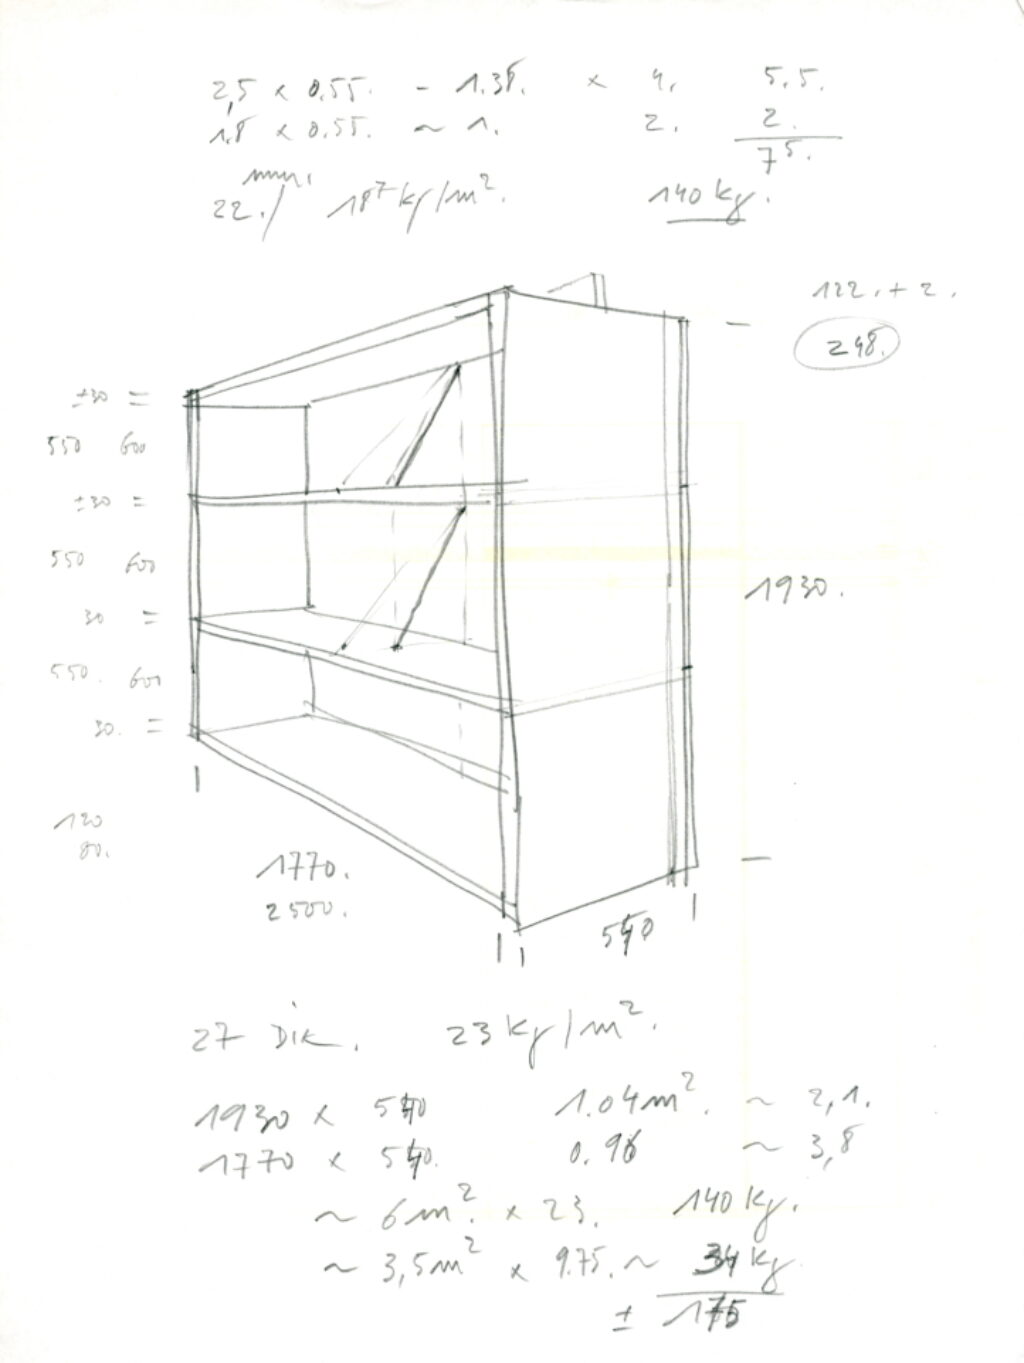 2,5 x 0.55. - 1.38. x 4. 5.5.
1.8 x 0.55. ~ 1. 2. 2.
7 5.
mm.
22./ 18 7 kg/m². 140 kg.
122. + 2.
248.
±30 =
550 600
±30 =
550 600
1930.
30 =
550. 600
30. =
120
80.
1770.
2500.
540
27 Dik. 23 kg/m².
1930 x 540 1.04m². ~ 2,1.
1770 x 540. 0.96 ~ 3,8
~ 6m². x 23. 140 kg.
~ 3,5m² x 9.75. ~ 34 kg
± 175